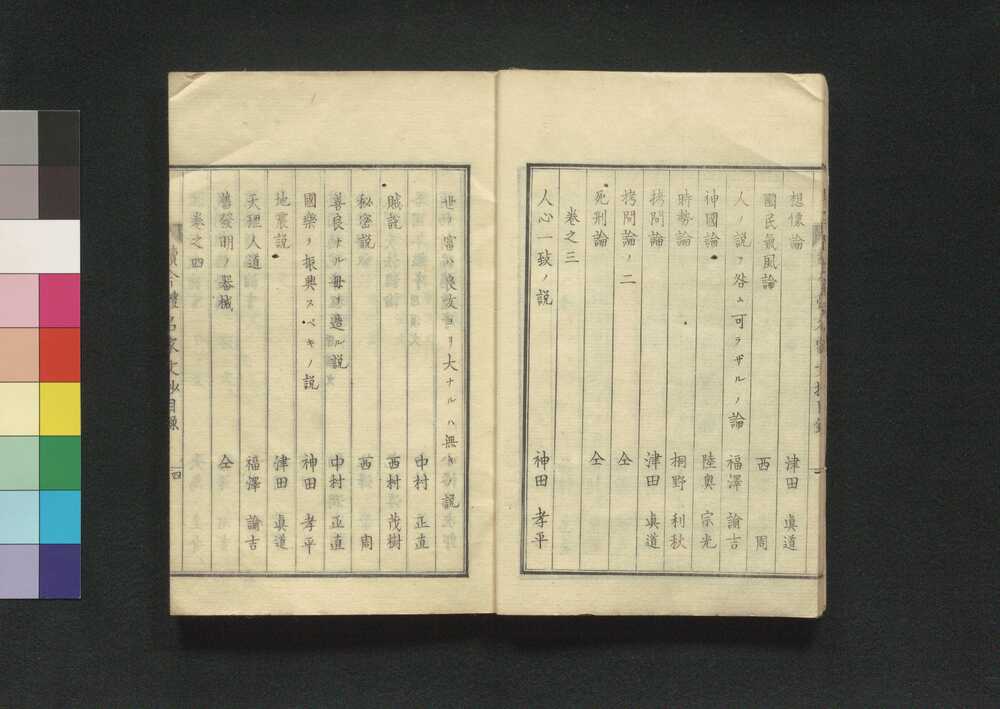 想像論 津田 眞道
國民氣風論 西 周
人ノ說ヲ咎ム可ラザルノ論 福澤 諭吉
神國論 陸奧 宗光
時勢論 桐野 利秋
拷問論 津田 眞道
拷問論ノ二 仝
死刑論 仝
卷之三
人心一致ノ說 神田 孝平
世ノ富ハ良女ヨリ大ナルハ無キ說
中村 正直
賊說 西村 茂樹
秘密說 西 周
善良ナル母ヲ造ル說 中村 正直
國樂ヲ振興スベキノ說 神田 孝平
地震說 津田 眞道
天理人道 福澤 諭吉
舊發明ノ器械 仝
卷之四
續今體名家文抄目錄 四